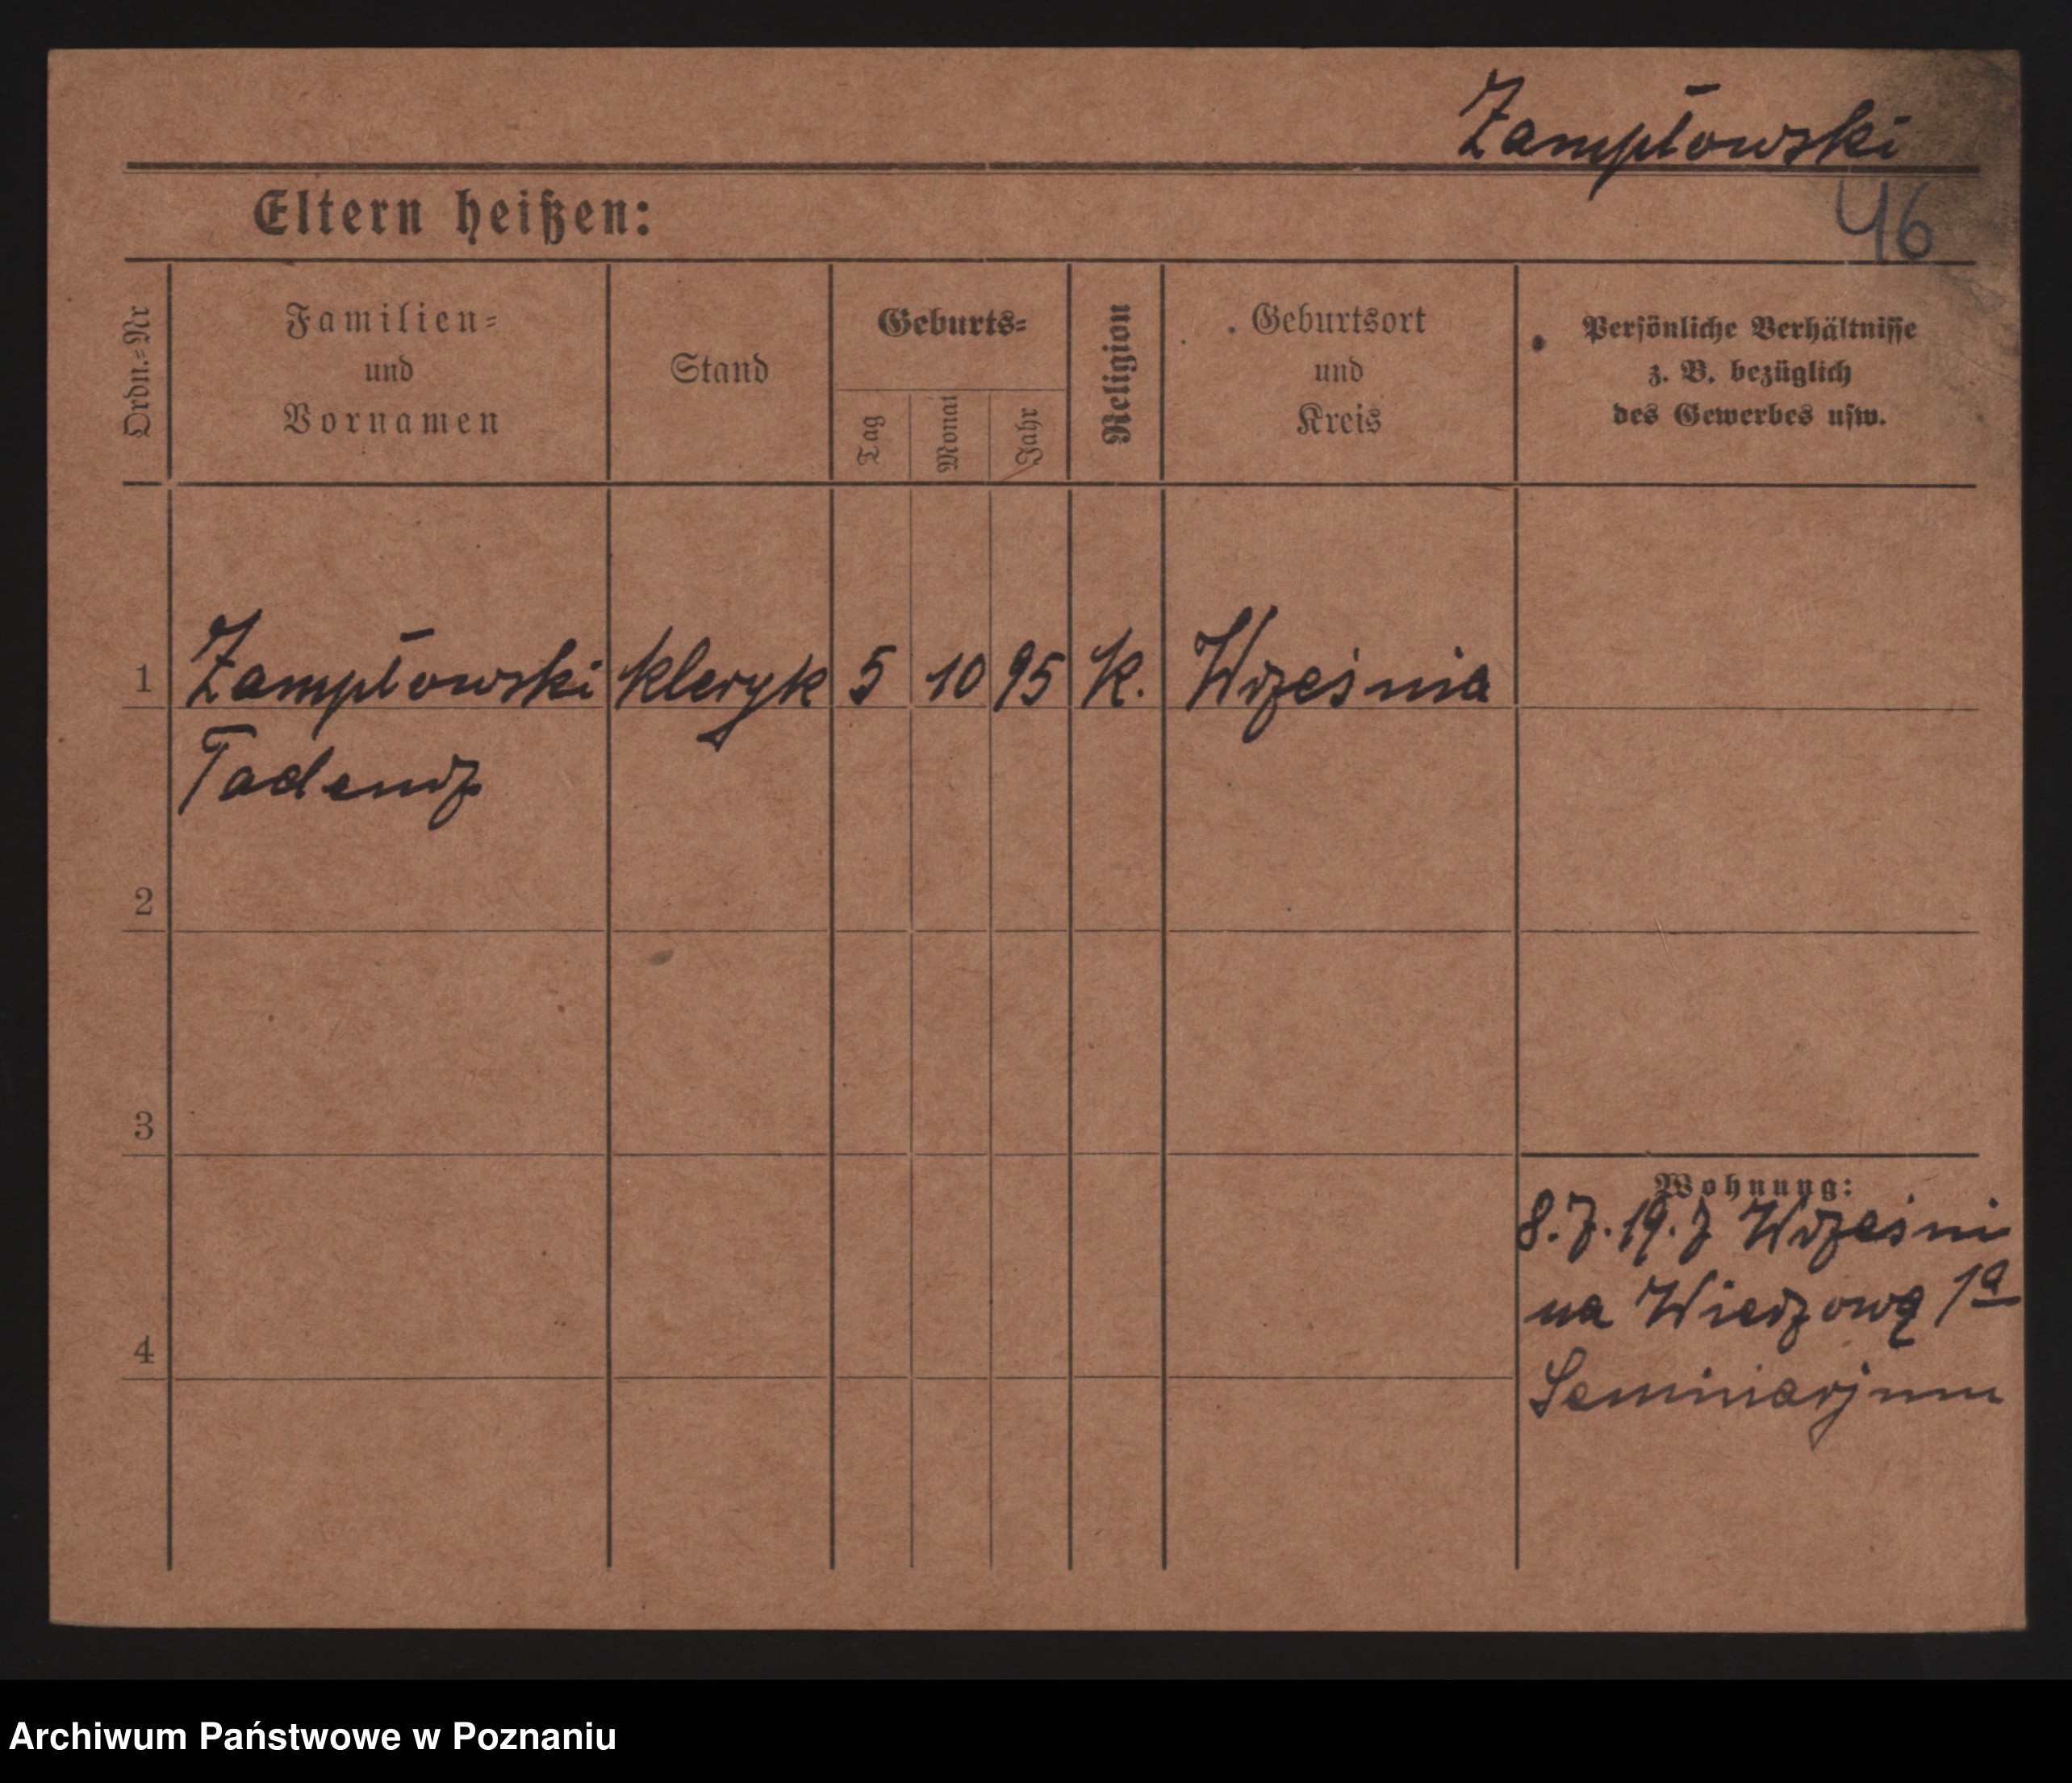 Zampłowski
46
Eltern heißen:
Ordn.=Nr
Familien=
und
Vornamen
Stand
Geburts=
Tag
Monat
Jahr
Religion
Geburtsort
und
Kreis
Persönliche Verhältnisse
z. B. bezüglich
des Gewerbes usw.
1 Zampłowski kleryk 5 10 95 K. Września
Tadeusz
2
3
4
Wohnung:
8.7.19. z Wrześni
na Wieżową 1a
Seminarjum
Archiwum Państwowe w Poznaniu